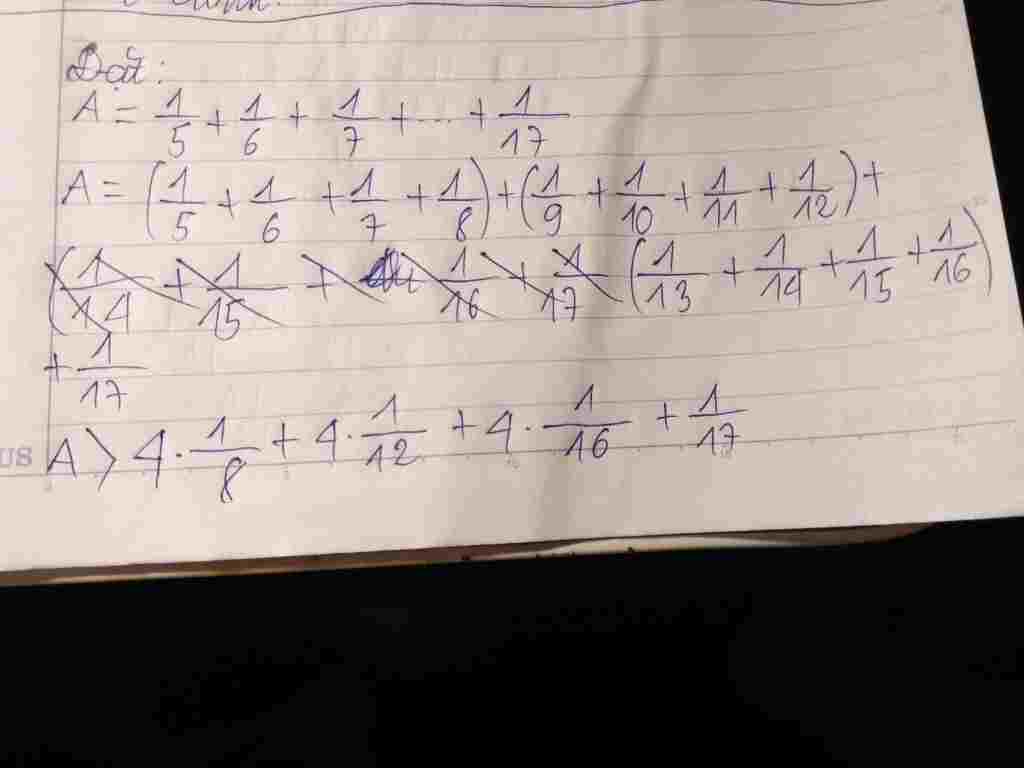 Đặt:
A = 1/5 + 1/6 + 1/7 + ... + 1/17
A = (1/5 + 1/6 + 1/7 + 1/8) + (1/9 + 1/10 + 1/11 + 1/12) +
(1/14 + 1/15 + 1/16 + 1/17 (1/13 + 1/14 + 1/15 + 1/16)
+ 1/17
A > 4 · 1/8 + 4 · 1/12 + 4 · 1/16 + 1/17
US